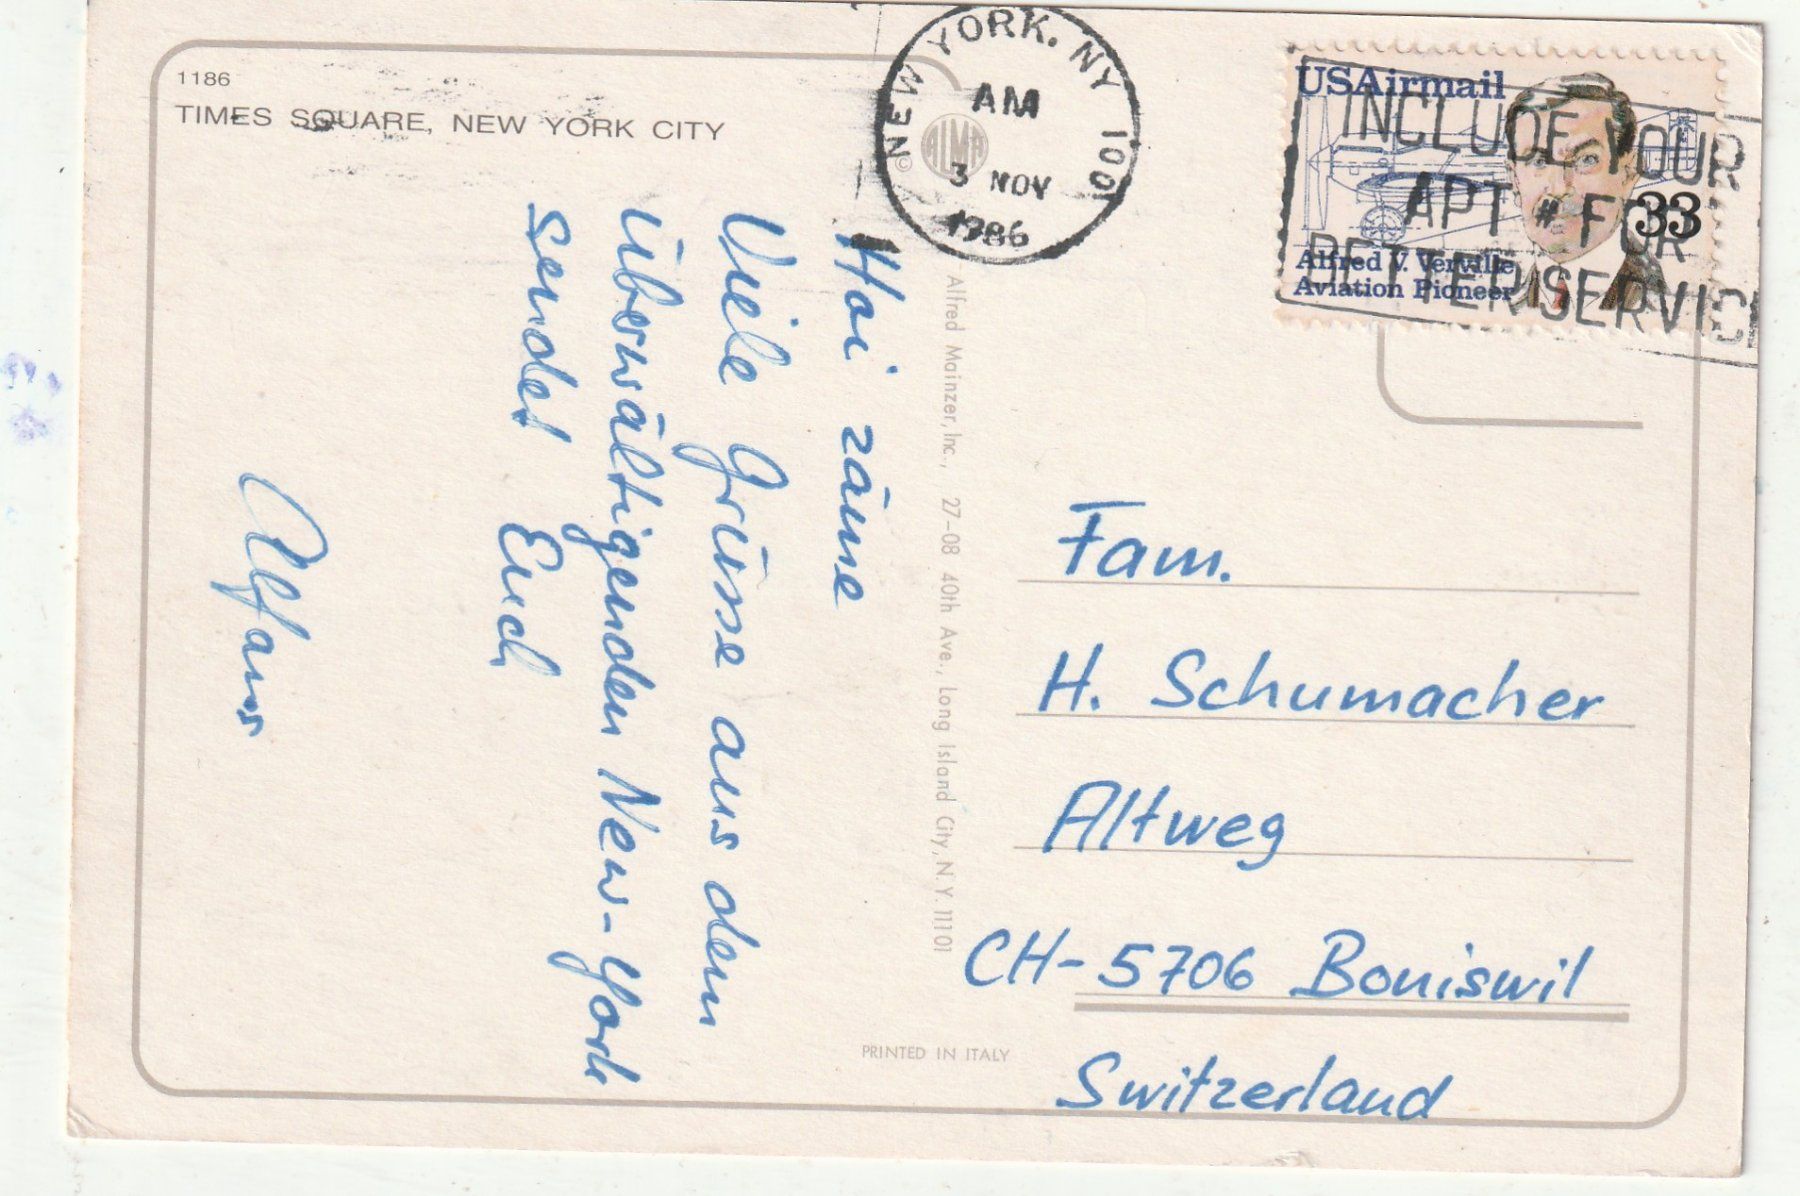 1186
TIMES SQUARE, NEW YORK CITY
NEW YORK, NY 100
AM
3 NOV
1986
©
ALMA
USAirmail
33
Alfred V. Verville
Aviation Pioneer
INCLUDE YOUR
APT # FOR
BETTER SERVICE
Hoi zäme
Viele Grüsse aus dem
überwältigenden New-York
sendet Euch
Alfons
Alfred Mainzer, Inc., 27-08 40th Ave., Long Island City, N.Y. 11101
Fam.
H. Schumacher
Altweg
CH-5706 Boniswil
Switzerland
PRINTED IN ITALY